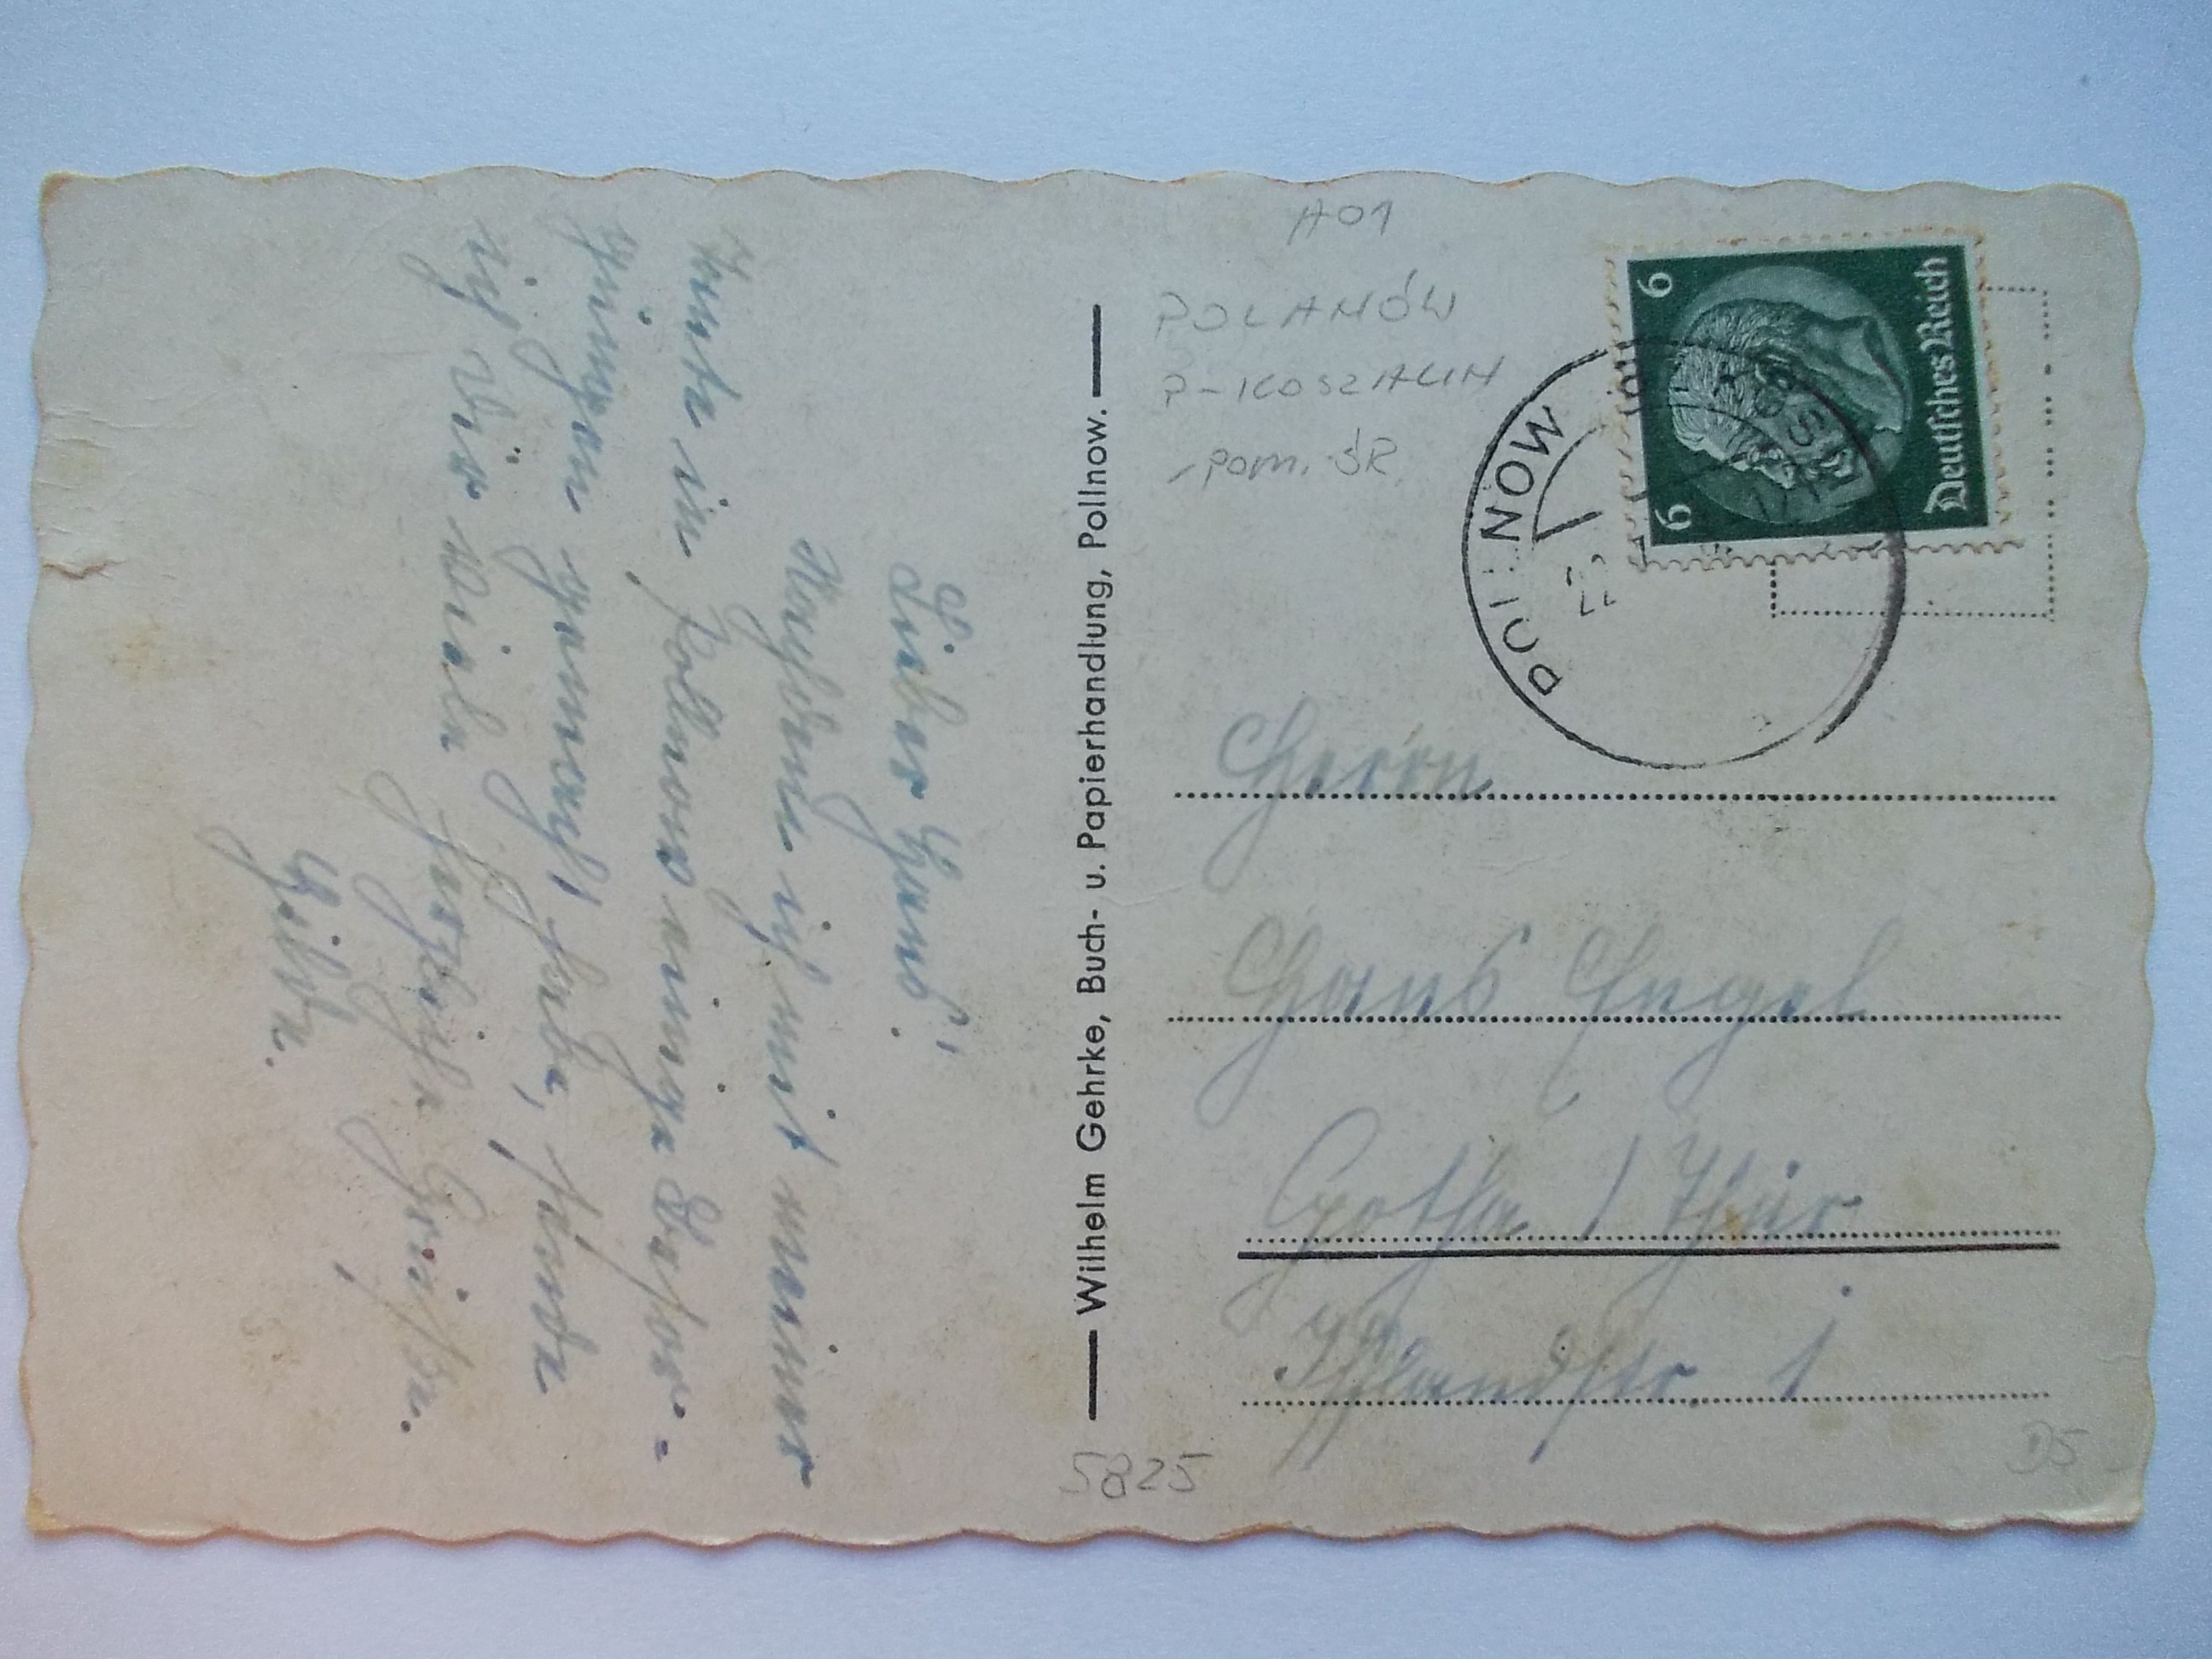 Lieber Hans!
Nachdem ich mit meiner
Tante in Pollnow einige Besor-
gungen gemacht habe, sende
ich Dir viele herzliche Grüße.
Hilde.
Wilhelm Gehrke, Buch- u. Papierhandlung, Pollnow.
A01
POLANÓW
P-KOSZALIN
POM. ŚR.
Deutsches Reich
6 6
POLLNOW
Herrn
Hans Engel
Gotha / Thür
Ifflandstr 1
5825
D5